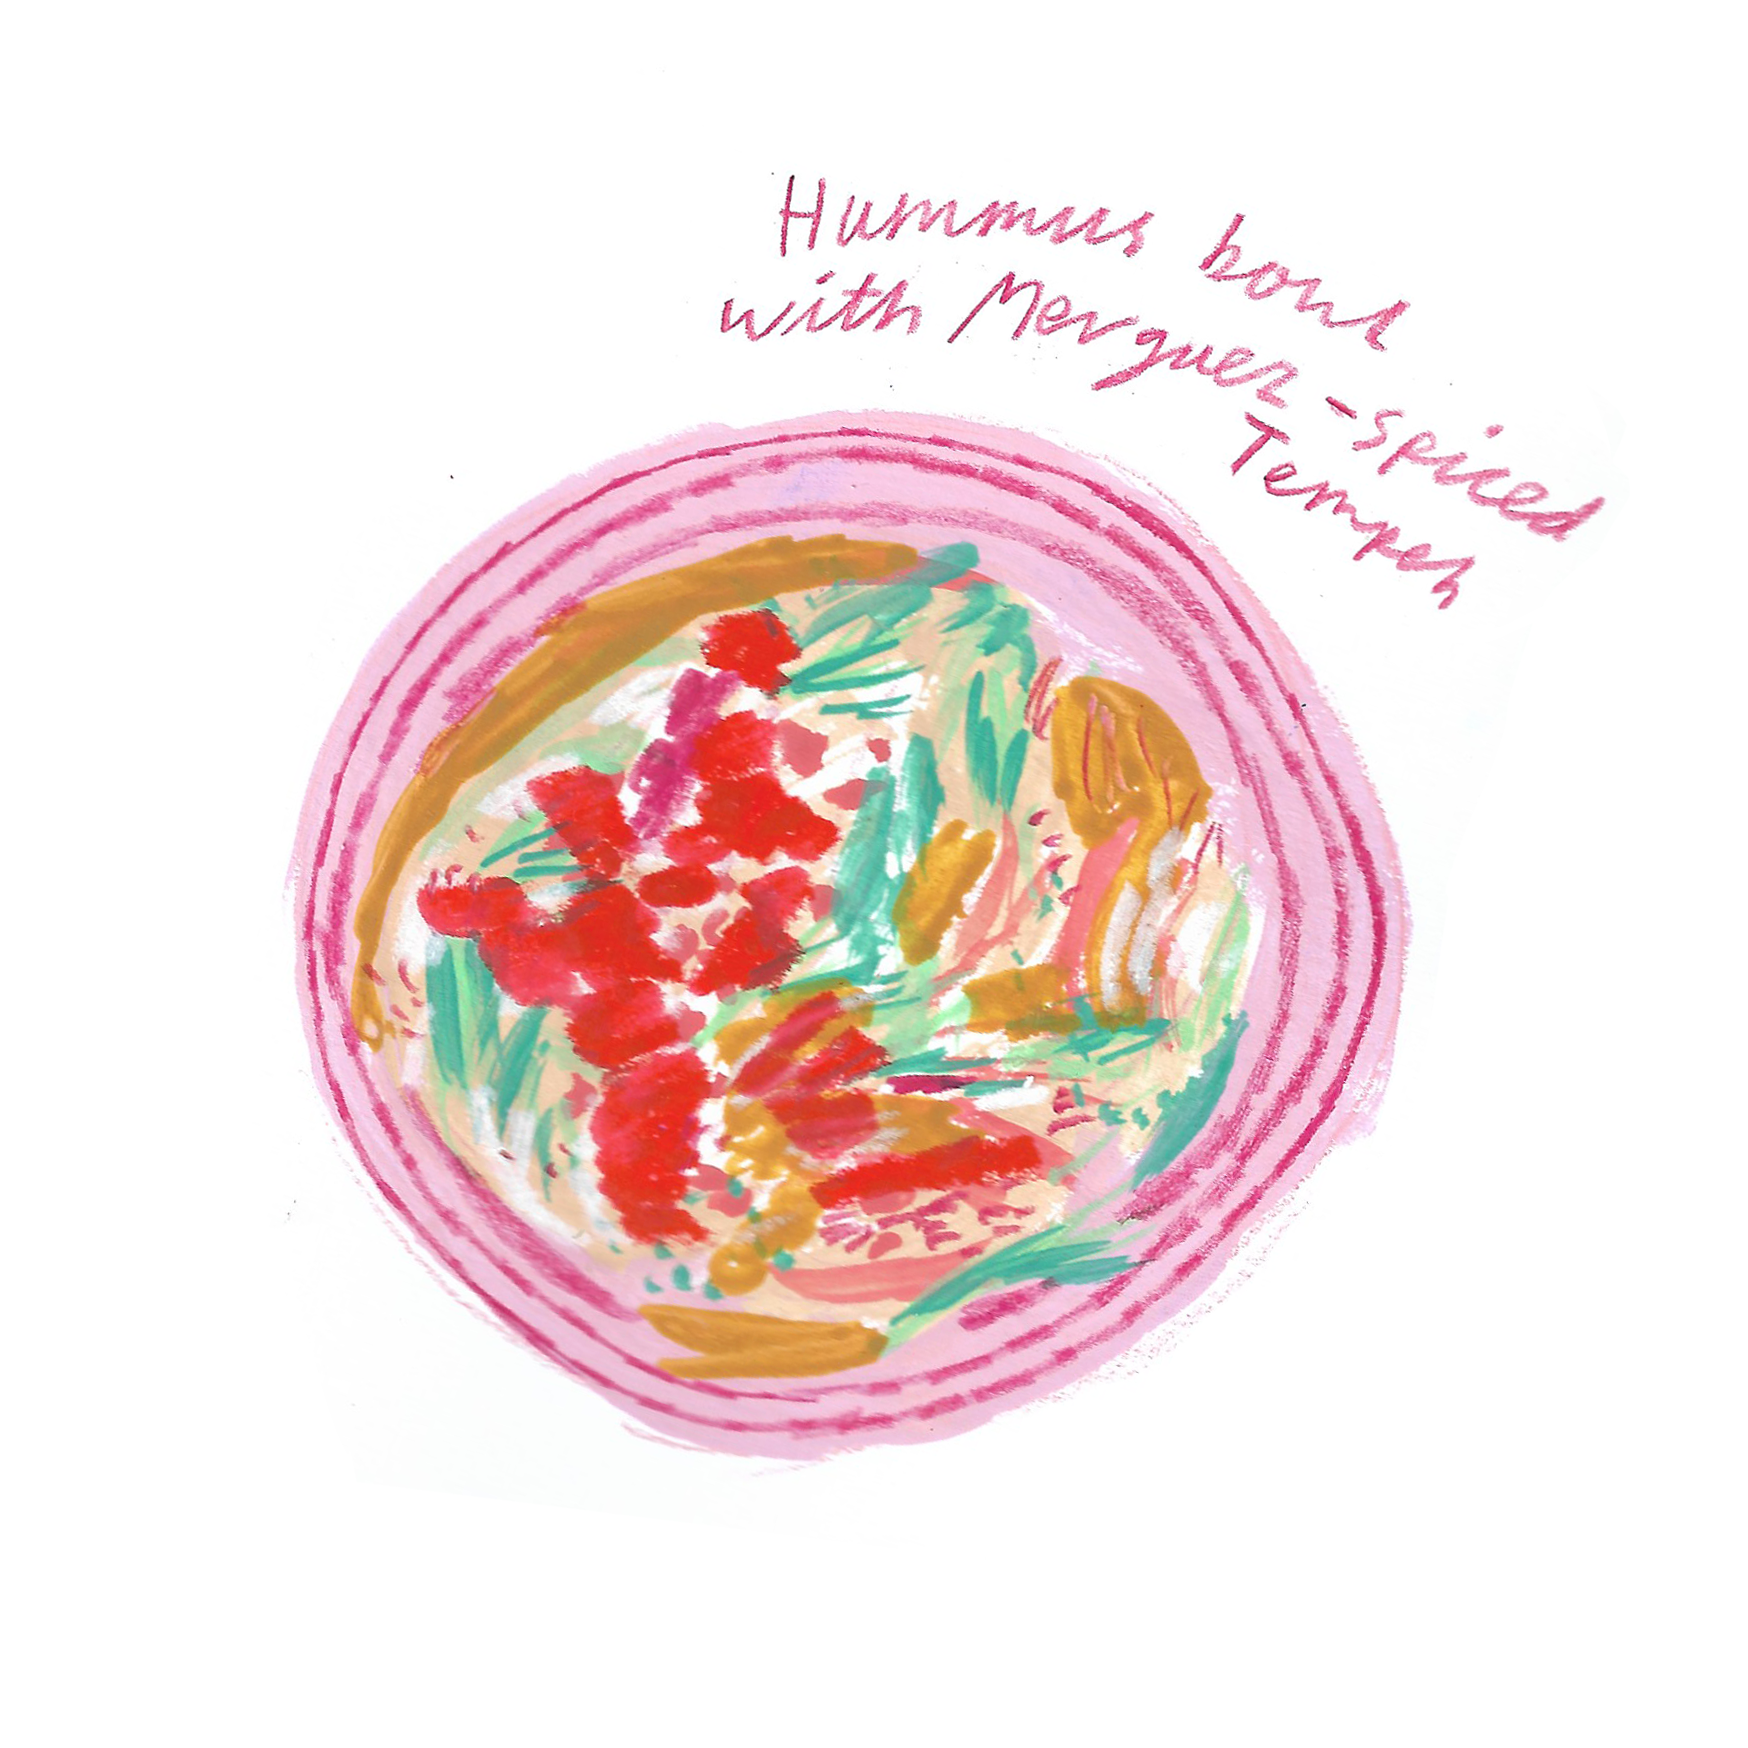 Hummus bowl
with Merguez-spiced
Tempeh